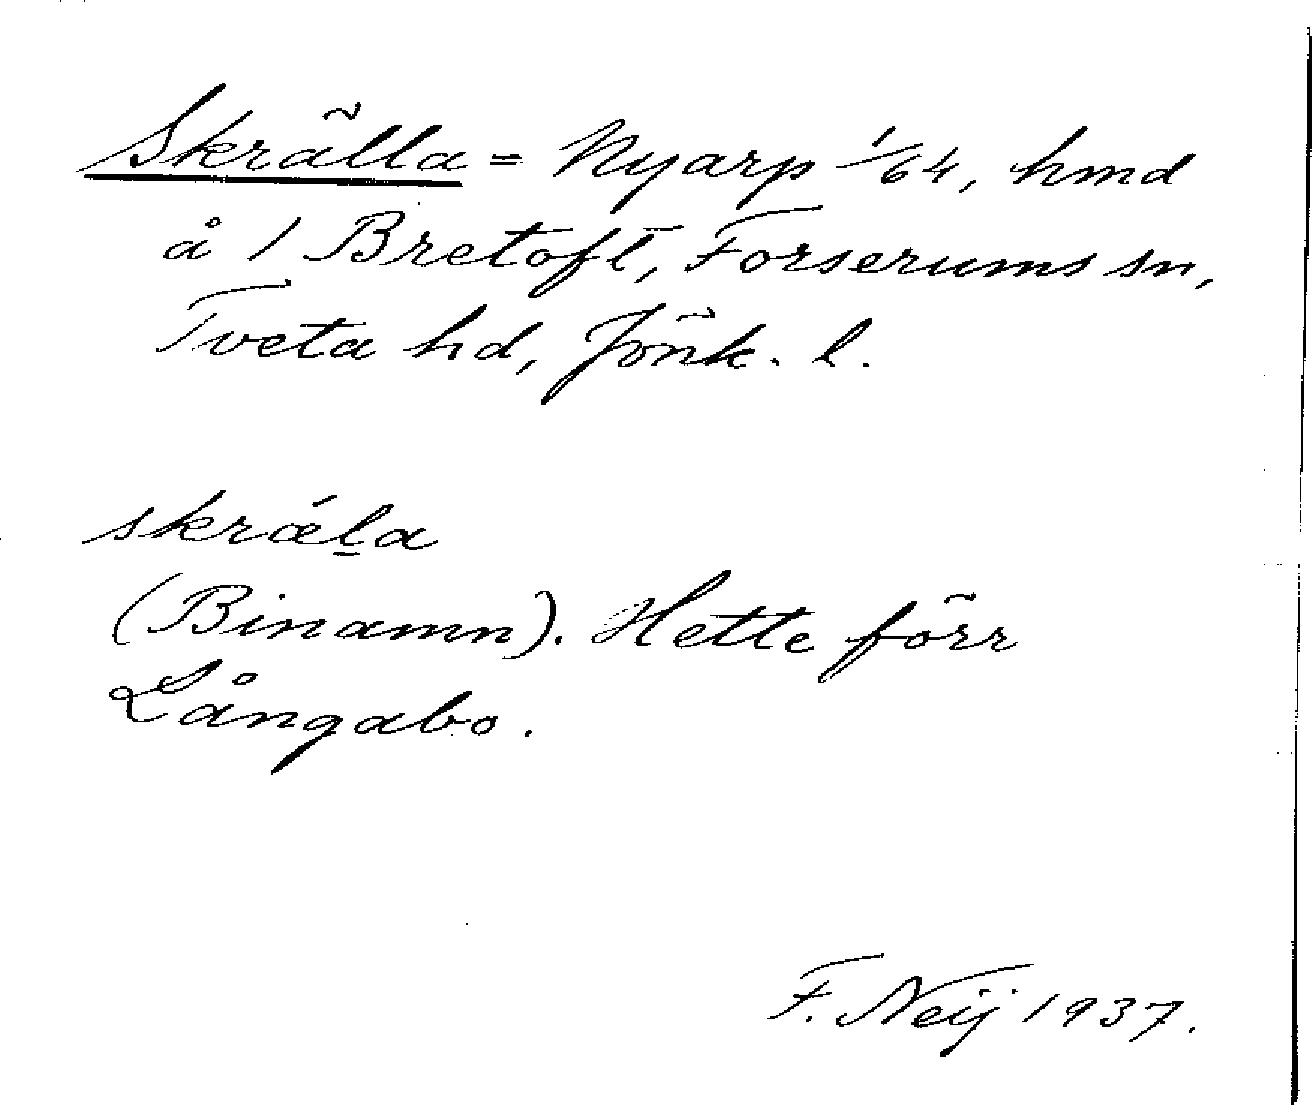 Skrälla = Nyarp 1/64, hmd
å 1 Bretoft, Forserums sn,
Tveta hd, Jönk. l.
skrǽl̲a
(Binamn). Hette förr
Långabo.
F. Neij 1937.